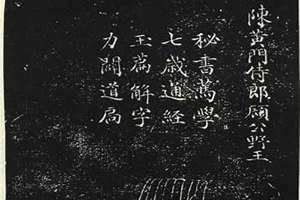 陳黃門侍郎顧公野王
秘書篤學
七歲通經
玉篇解字
力闢道